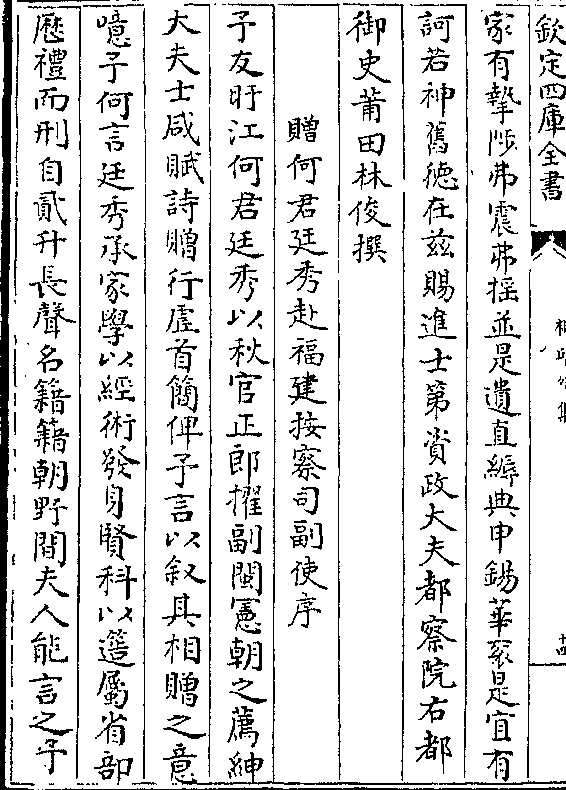 欽定四庫全書
家有摯陟弗震弗揺並是遺直綍典申錫華衮是宜有
訶若神舊徳在兹賜進士第資政大夫都察院右都
御史莆田林俊撰
贈何君廷秀赴福建按察司副使序
予友盱江何君廷秀以秋官正郎擢副閩憲朝之薦紳
大夫士咸賦詩贈行虛首簡俾予言以叙其相贈之意
噫予何言廷秀承家學以經術發身賢科以簉屬省部
歴禮而刑自貳升長聲名籍籍朝野間夫人能言之予